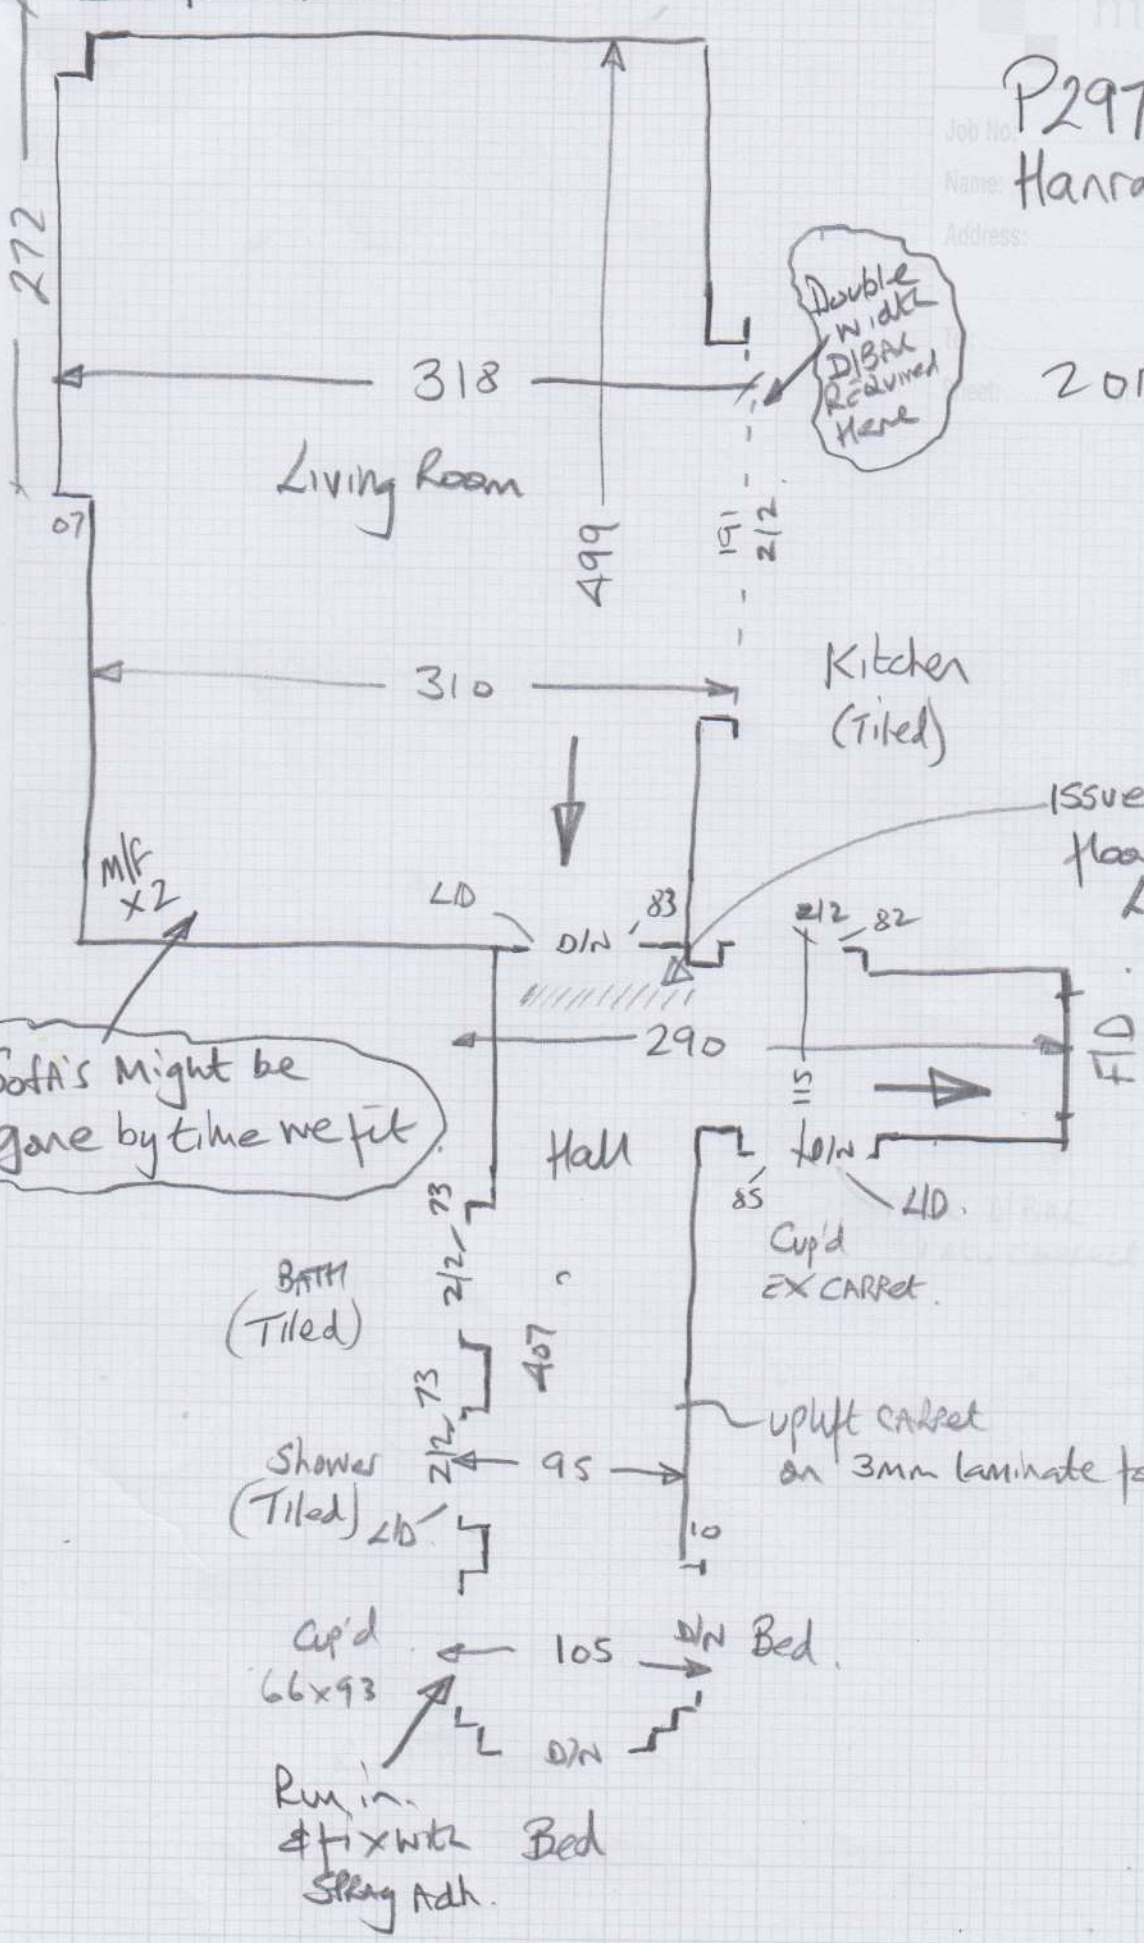 P297
Job No:
Name: Hanra
Address:
272
Double
width
D/BAR
REQuired
Here
201
318
Living Room
07
499
191
2/2
310
Kitchen
(Tiled)
ISSUE
floo
M/F
x2
L/D
D/N
83
2/2
82
290
F/D
Sofa's Might be
gone by time we fit
115
Hall
85
D/N
L/D.
Cup'd
EX CARPet.
73
2/2
BATH
(Tiled)
407
73
2/2
Shower
(Tiled)
L/D
95
uplift CARPet
on 3mm laminate
10
Cup'd
66x93
105
D/N
Bed.
D/N
Run in.
& fix with
SPRAY Adh.
Bed